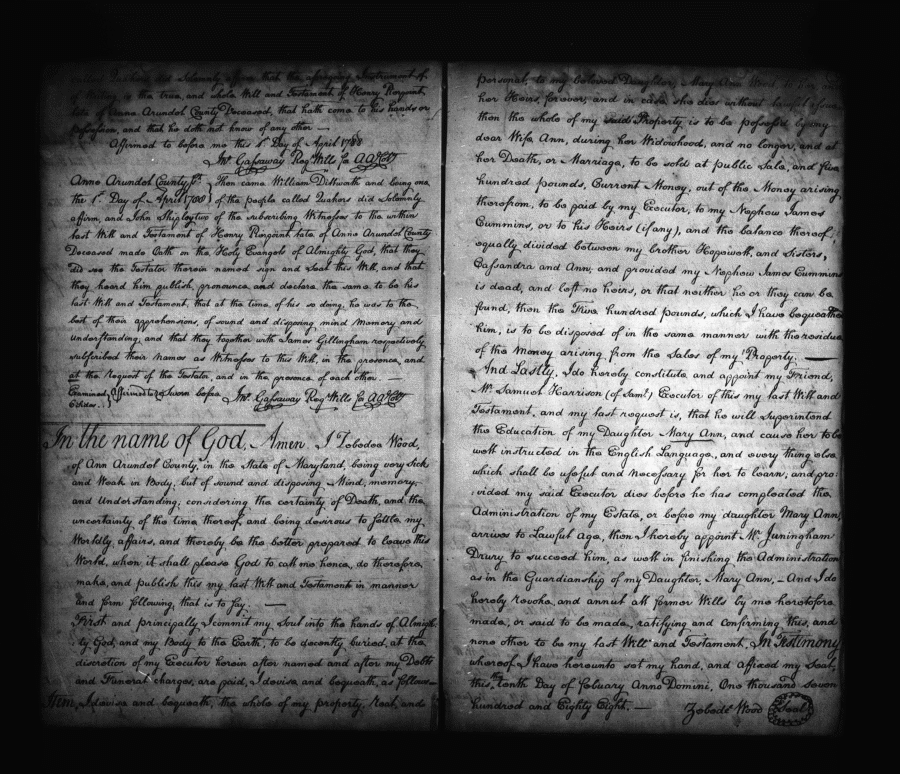 called Quakers did Solemnly affirm that the aforegoing Instrument of
of Writing is the true, and whole Will and Testament of Henry Ringoint
late of Anne Arundel County Deceased, that hath come to his hands or
possession, and that he doth not know of any other —
Affirmed to before me this 1st Day of April 1788
Jno. Gassaway Reg Wills fo AACoty
Anne Arundel County Sc. } Then came William Dillworth and being one
the 1st Day of April 1788 } of the people called Quakers did Solemnly
affirm, and John Shipley two of the subscribing Witnesses to the within
last Will and Testament of Henry Ringoint late of Anne Arundel County
Deceased made Oath on the Holy Evangels of Almighty God, that they
did see the Testator therein named sign and Seal this Will, and that
they heard him publish, pronounce and declare the same to be his
last Will and Testament, that at the time of his so doing, he was to the
best of their apprehensions, of sound and disposing mind memory and
understanding, and that they together with James Gillingham respectively
subscribed their names as Witnesses to this Will, in the presence, and
at the request of the Testator, and in the presence of each other. —
Examined } Affirmed & Sworn before Jno. Gassaway Reg Wills fo AACoty
In the name of God, Amen. I Zebedee Wood,
of Ann Arundel County, in the State of Maryland, being very Sick
and Weak in Body, but of sound and disposing Mind, memory,
and Understanding, considering the certainty of Death, and the
uncertainty of the time thereof, and being desirous to settle my
Worldly affairs, and thereby be the better prepared to leave this
World, when it shall please God to call me hence, do therefore
make, and publish this my last Will and Testament in manner
and form following, that is to say: —
First and principally I commit my Soul into the hands of Almigh=
ty God, and my Body to the Earth, to be decently buried, at the
discretion of my Executor herein after named and after my Debts
and Funeral charges, are paid, I devise and bequeath, as follows—
Item, I devise and bequeath, the whole of my property, Real, and
personal, to my beloved Daughter, Mary Ann
her Heirs, forever, and in case she dies without lawful
then the whole of my said Property is to be possessed by my
dear Wife Ann, during her Widowhood, and no longer, and at
her Death, or Marriage, to be sold at public Sale, and five
hundred pounds, Current Money, out of the Money arising
therefrom, to be paid by my Executor, to my Nephew James
Cummins, or to his Heirs (if any), and the balance thereof
equally divided between my brother Hopewell, and Sisters,
Cassandra and Ann, and provided my Nephew James Cummins
is dead, and left no heirs, or that neither he or they can be
found, then the Five hundred pounds, which I have bequeathed
him, is to be disposed of in the same manner with the residue
of the Money arising from the Sales of my Property. —
And Lastly. I do hereby constitute and appoint my Friend,
Mr Samuel Harrison (of Saml) Executor of this my last Will and
Testament, and my last request is, that he will Superintend
the Education of my Daughter Mary Ann, and cause her to be
well instructed in the English Language, and every thing else
which shall be useful and necessary for her to learn, and pro:
:vided my said Executor dies before he has compleated the
Administration of my Estate, or before my daughter Mary Ann
arrives to Lawful Age, then I hereby appoint Mr. Juningham
Drury to succeed him, as well in finishing the Administration
as in the Guardianship of my Daughter, Mary Ann, — And I do
hereby revoke, and annul all former Wills by me heretofore
made, or said to be made, ratifying and confirming this, and
none other to be my last Will and Testament, In Testimony
whereof, I have hereunto set my hand, and affixed my Seal,
this the tenth Day of febuary Anno Domini, One thousand seven
hundred and Eighty Eight, — Zebede Wood Seal